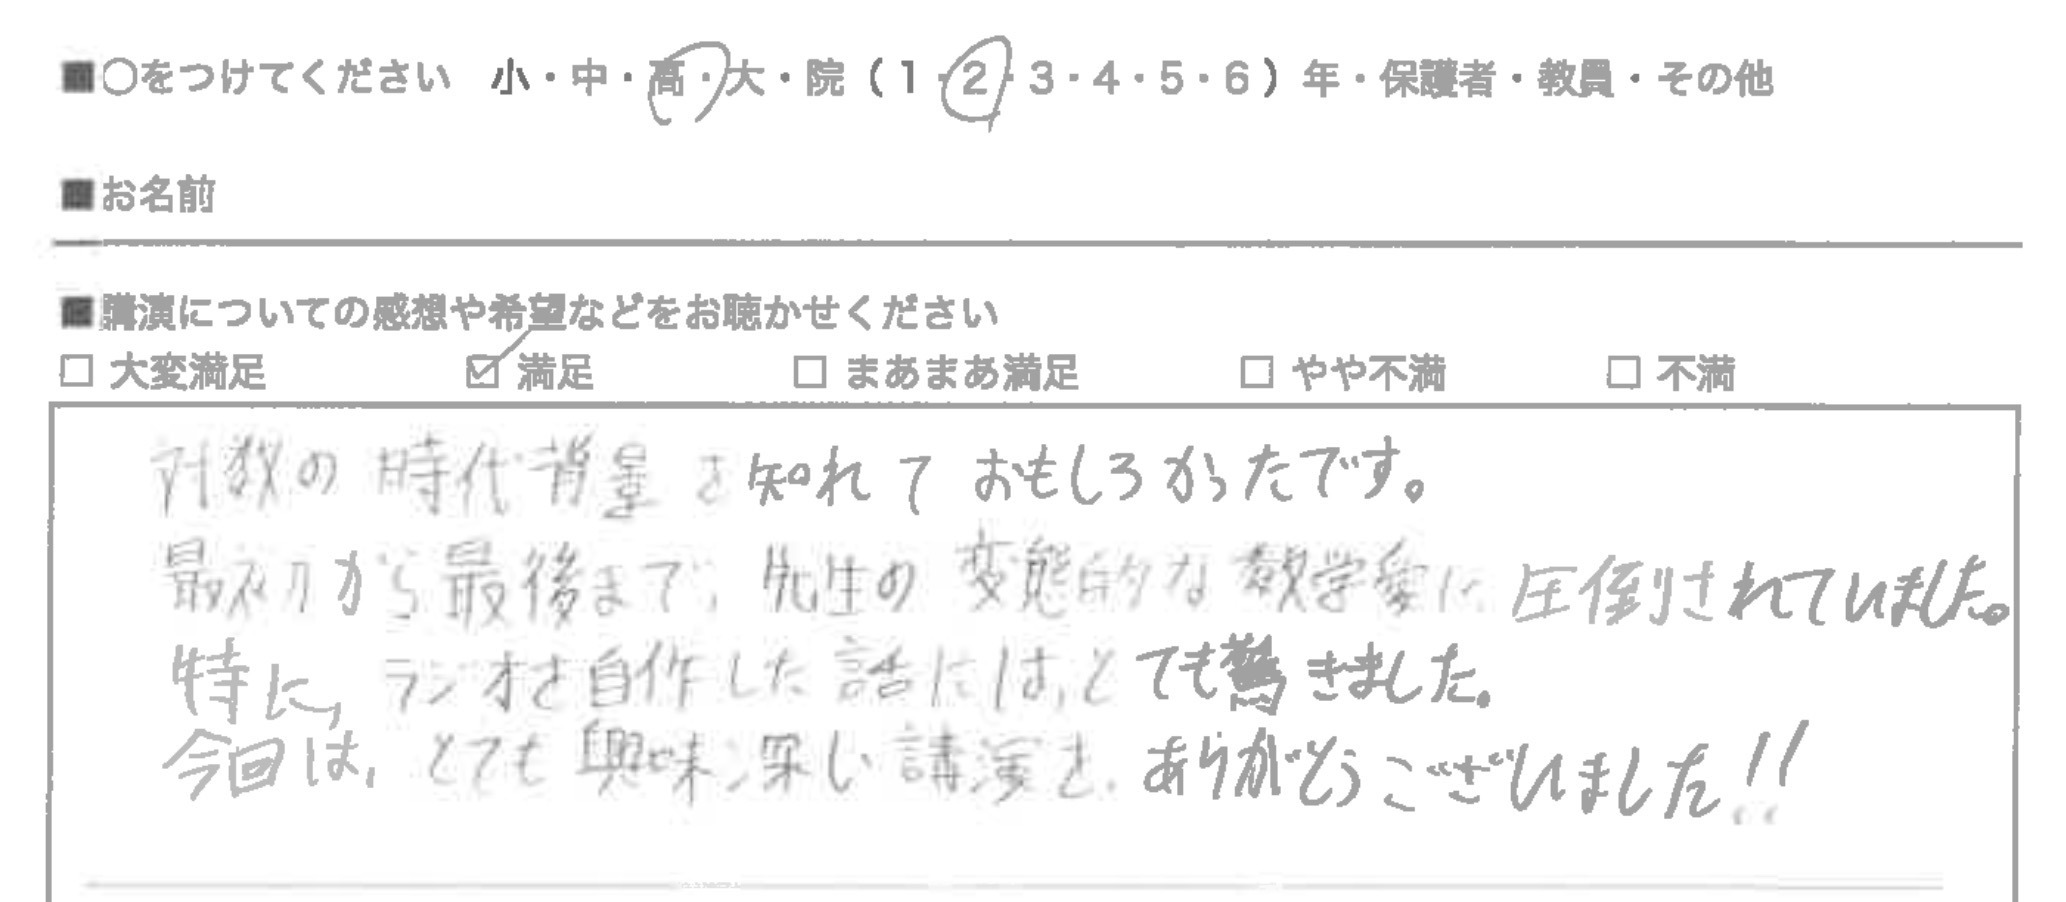 ■○をつけてください 小・中・高・大・院(1・2・3・4・5・6)年・保護者・教員・その他
■お名前
■講演についての感想や希望などをお聴かせください
□ 大変満足 ☑ 満足 □ まあまあ満足 □ やや不満 □ 不満
対数の時代背景を知れておもしろかったです。
最初から最後まで、先生の変態的な数学愛に圧倒されていました。
特に、ラジオを自作した話には、とても驚きました。
今回は、とても興味深い講演を、ありがとうございました!!